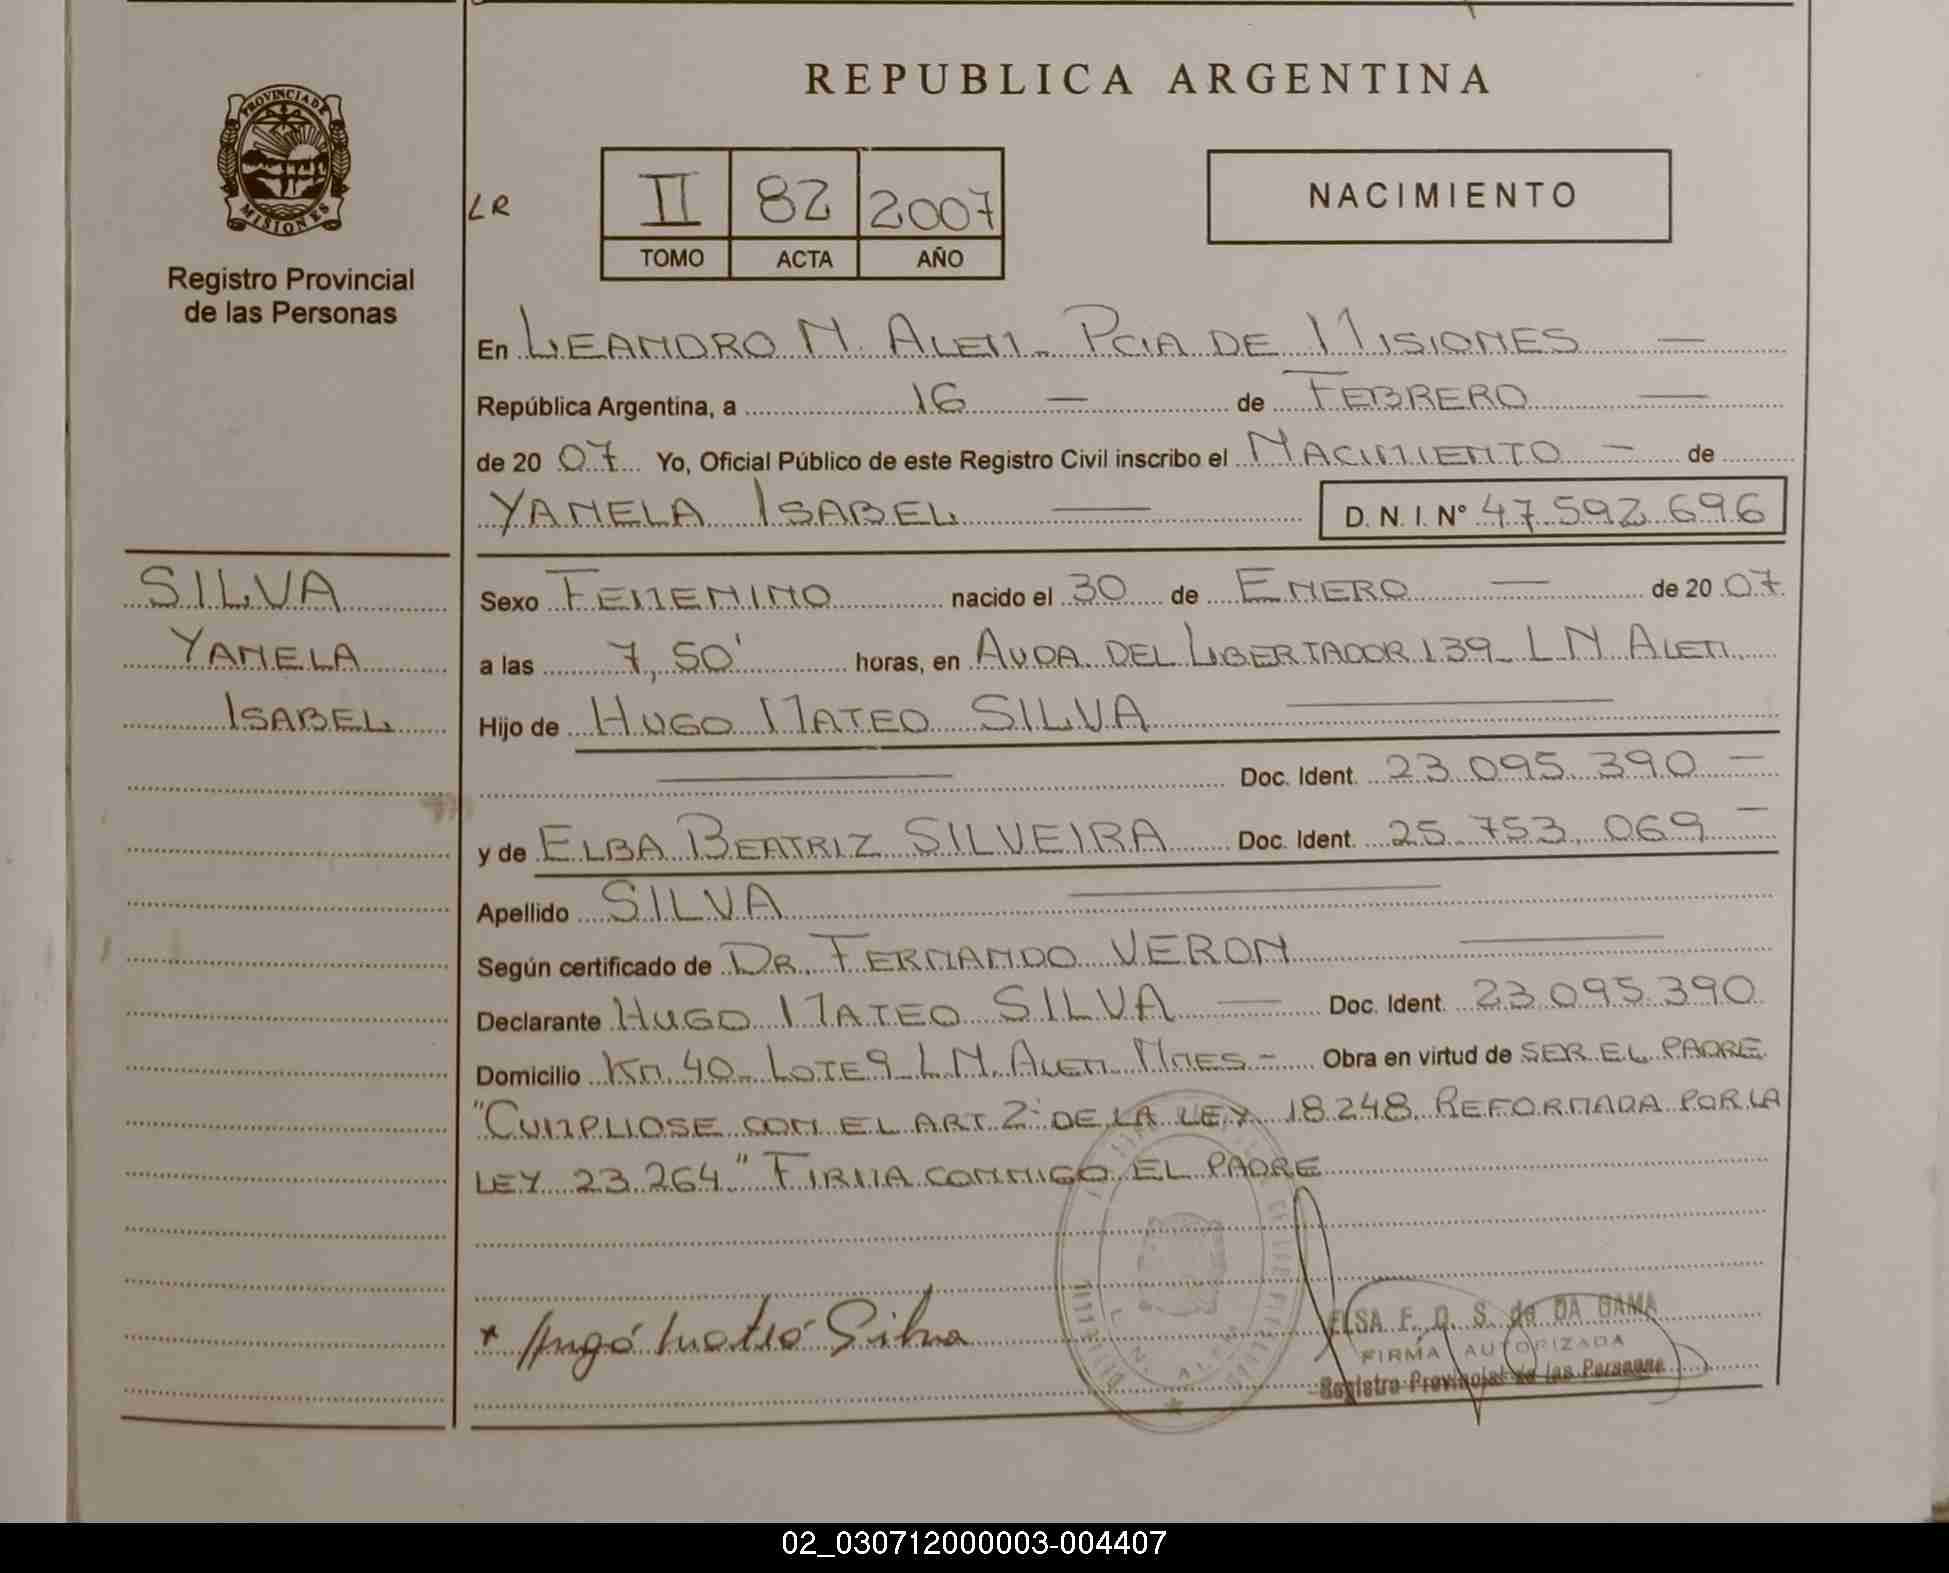 REPUBLICA ARGENTINA
PROVINCIA DE
MISIONES
Registro Provincial
de las Personas
LR
II 82 2007
TOMO ACTA AÑO
NACIMIENTO
En LEANDRO N. ALEM - PCIA DE MISIONES —
República Argentina, a 16 — de FEBRERO —
de 20 07 Yo, Oficial Público de este Registro Civil inscribo el NACIMIENTO — de
YANELA ISABEL — D. N. I. N° 47.592.696
SILVA
YANELA
ISABEL
Sexo FEMENINO nacido el 30 de ENERO — de 20 07
a las 7,50' horas, en AVDA. DEL LIBERTADOR 139 - L N ALEM
Hijo de HUGO MATEO SILVA —
— Doc. Ident. 23.095.390 —
y de ELBA BEATRIZ SILVEIRA Doc. Ident. 25.753.069 —
Apellido SILVA —
Según certificado de DR. FERNANDO VERON —
Declarante HUGO MATEO SILVA — Doc. Ident. 23.095.390
Domicilio KM. 40 - LOTE 9 - L N. ALEM. MNES - Obra en virtud de SER EL PADRE
"CUMPLIOSE CON EL ART. 2° DE LA LEY 18.248. REFORMADA POR LA
LEY 23.264" FIRMA CONMIGO EL PADRE
Hugo Mateo Silva
ELSA F. O. S. de DA GAMA
FIRMA AUTORIZADA
Registro Provincial de las Personas
02_030712000003-004407